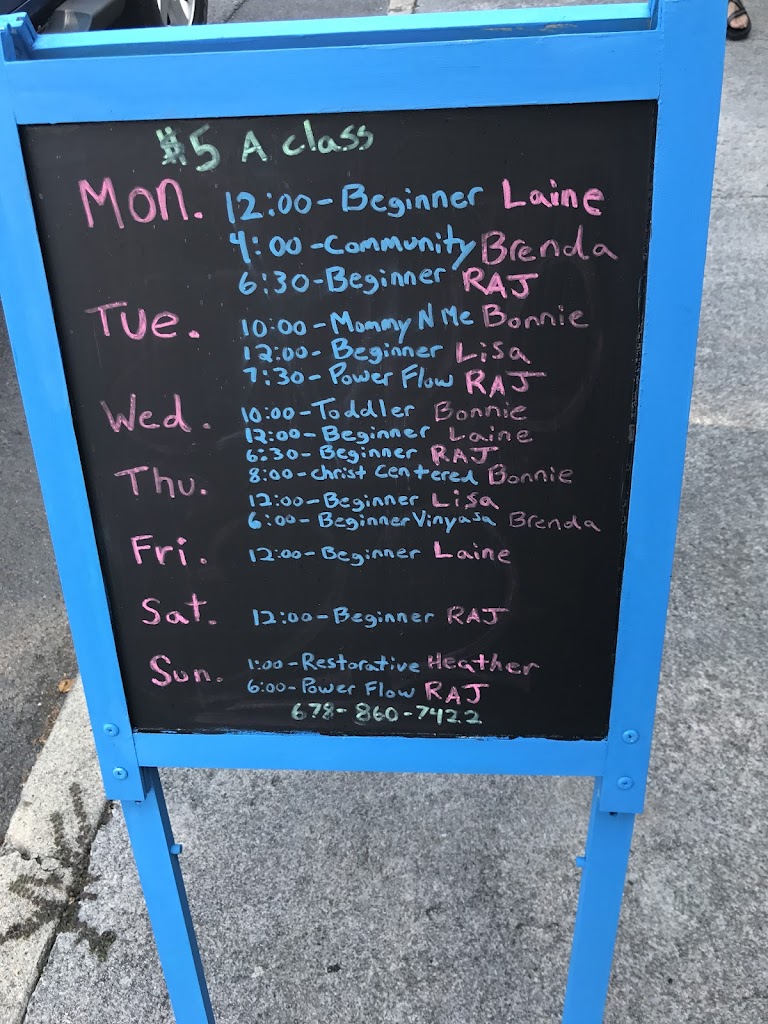 $5 A class
Mon. 12:00-Beginner Laine
4:00-Community Brenda
6:30-Beginner RAJ
Tue. 10:00-Mommy N Me Bonnie
12:00-Beginner Lisa
7:30-Power Flow RAJ
Wed. 10:00-Toddler Bonnie
12:00-Beginner Laine
6:30-Beginner RAJ
Thu. 8:00-christ centered Bonnie
12:00-Beginner Lisa
6:00-Beginner Vinyasa Brenda
Fri. 12:00-Beginner Laine
Sat. 12:00-Beginner RAJ
Sun. 1:00-Restorative Heather
6:00-Power Flow RAJ
678-860-7422